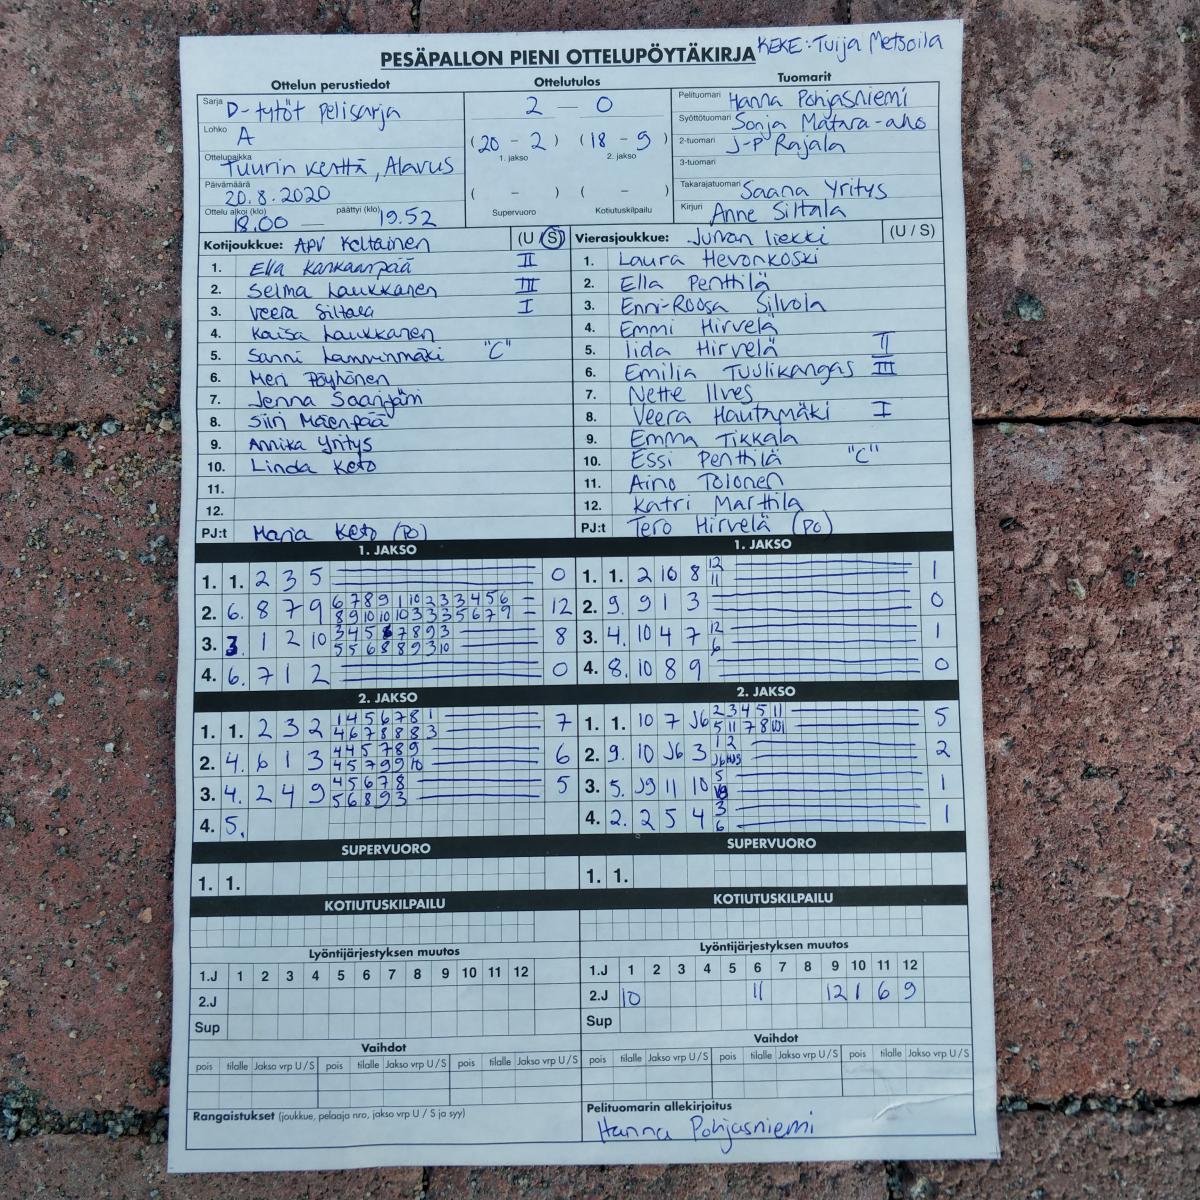 PESÄPALLON PIENI OTTELUPÖYTÄKIRJA KEKE: Tuija Metsoila
Ottelun perustiedot Ottelutulos Tuomarit
Sarja D-tytöt pelisarja
Lohko A
Ottelupaikka Tuurin kenttä, Alavus
Päivämäärä 20.8.2020
Ottelu alkoi (klo) 18.00 — päättyi (klo) 19.52
2 — 0
(20 - 2) (18 - 9)
1. jakso 2. jakso
( - ) ( - )
Supervuoro Kotiutuskilpailu
Pelituomari Hanna Pohjasniemi
Syöttötuomari Sonja Matara-aho
2-tuomari J-P Rajala
3-tuomari
Takarajatuomari Saana Yritys
Kirjuri Anne Siltala
Kotijoukkue: APV Keltainen (U / S)
1. Ella Kankaanpää II
2. Selma Laukkanen III
3. Veera Siltala I
4. Kaisa Laukkanen
5. Sanni Lamminmäki "C"
6. Meri Pöyhönen
7. Jenna Saarijärvi
8. Siiri Mäenpää
9. Annika Yritys
10. Linda Keto
11.
12.
PJ:t Marja Keto (PO)
Vierasjoukkue: Jurvan liekki (U / S)
1. Laura Hevonkoski
2. Ella Penttilä
3. Enni-Roosa Silvola
4. Emmi Hirvelä
5. Iida Hirvelä II
6. Emilia Tuulikangas III
7. Nette Ilves
8. Veera Hautamäki I
9. Emma Tikkala
10. Essi Penttilä "C"
11. Aino Tolonen
12. Katri Marttila
PJ:t Tero Hirvelä (PO)
1. JAKSO
1. 1. 2 3 5 0
2. 6. 8 7 9 6 7 8 9 1 10 2 3 3 4 5 6 12
8 9 10 10 10 3 3 3 5 6 7 9
3. 3. 1 2 10 3 4 5 6 7 8 9 3 8
5 5 6 8 8 9 3 10
4. 6. 7 1 2 0
1. JAKSO
1. 1. 2 10 8 12 1
11
2. 9. 9 1 3 0
3. 4. 10 4 7 12 1
6
4. 8. 10 8 9 0
2. JAKSO
1. 1. 2 3 2 1 4 5 6 7 8 1 7
4 6 7 8 8 8 3
2. 4. 6 1 3 4 4 5 7 8 9 6
4 5 7 9 9 10
3. 4. 2 4 9 4 5 6 7 8 5
5 6 8 9 3
4. 5.
2. JAKSO
1. 1. 10 7 J6 2 3 4 5 11 5
5 11 7 8
2. 9. 10 J6 3 1 2 2
3. 5. J9 11 10 5 1
4. 2. 2 5 4 3 1
6
SUPERVUORO
1. 1.
SUPERVUORO
1. 1.
KOTIUTUSKILPAILU
KOTIUTUSKILPAILU
Lyöntijärjestyksen muutos
1.J 1 2 3 4 5 6 7 8 9 10 11 12
2.J
Sup
Lyöntijärjestyksen muutos
1.J 1 2 3 4 5 6 7 8 9 10 11 12
2.J 10 11 12 1 6 9
Sup
Vaihdot
pois tilalle Jakso vrp U / S pois tilalle Jakso vrp U / S pois tilalle Jakso vrp U / S
Vaihdot
pois tilalle Jakso vrp U / S pois tilalle Jakso vrp U / S pois tilalle Jakso vrp U / S
Rangaistukset (joukkue, pelaaja nro, jakso vrp U / S ja syy)
Pelituomarin allekirjoitus
Hanna Pohjasniemi